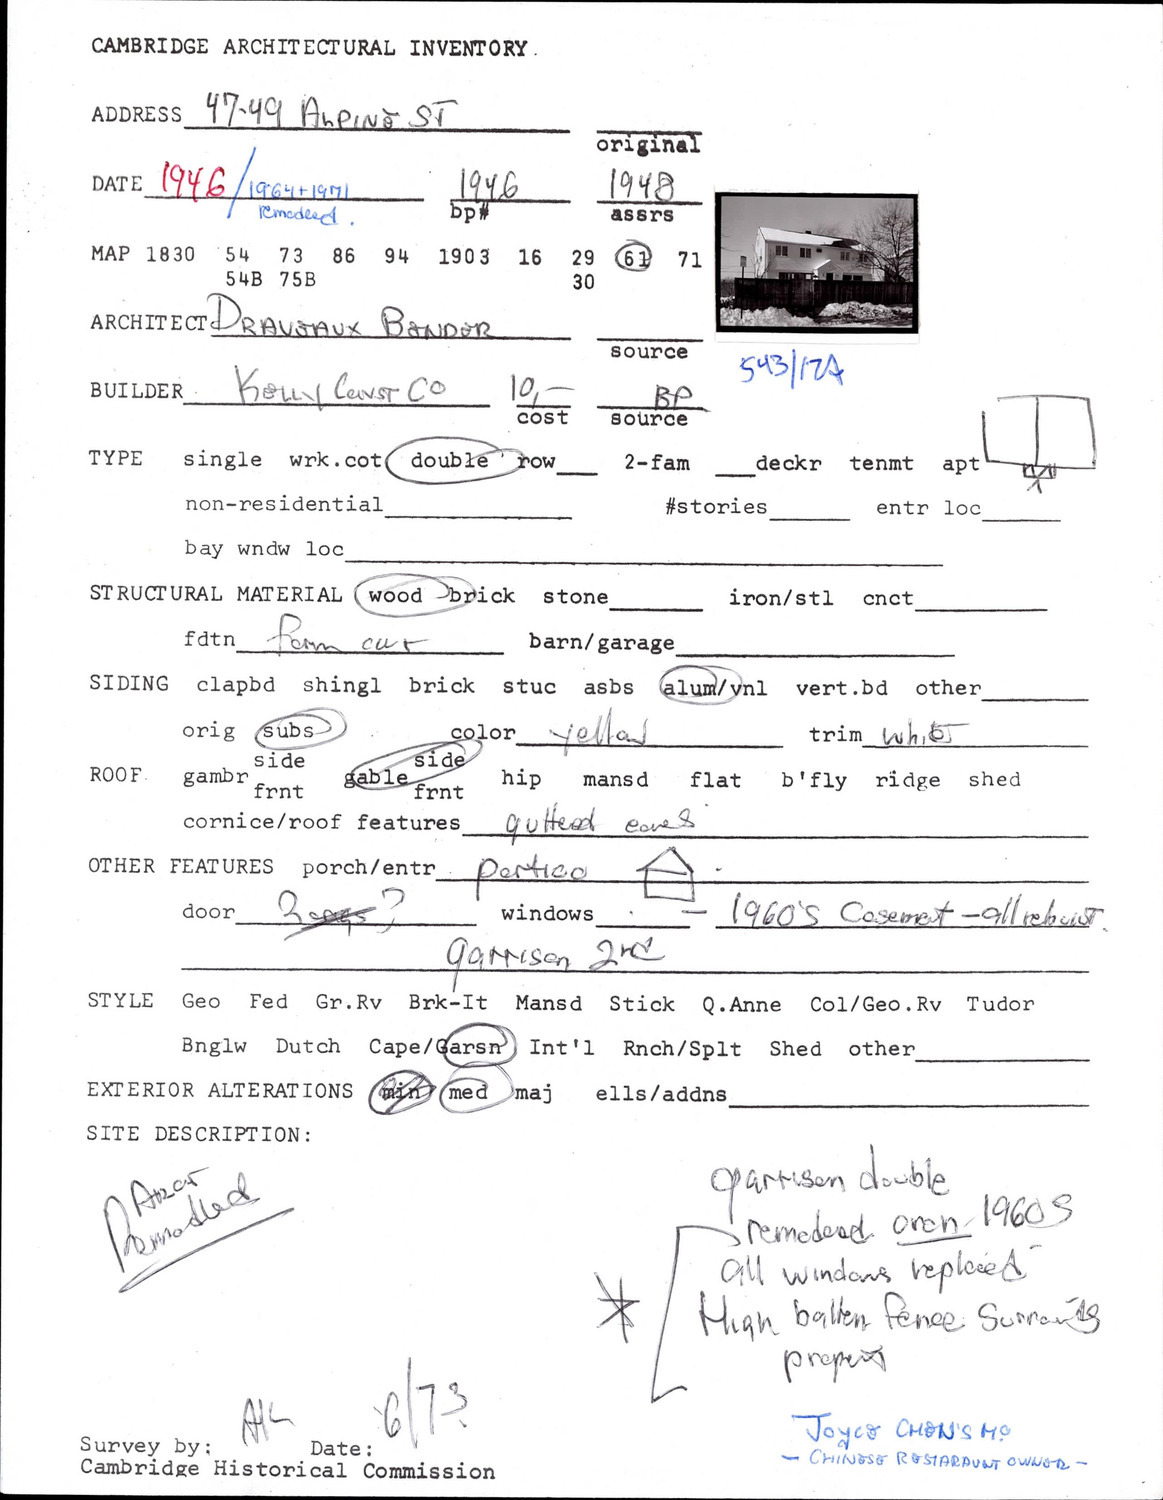 CAMBRIDGE ARCHITECTURAL INVENTORY.
ADDRESS 47-49 ALPINE ST
original
DATE 1946 / 1964+1971 1946 1948
remodeled. bp# assrs
MAP 1830 54 73 86 94 1903 16 29 61 71
54B 75B 30
ARCHITECT BENDER
source
543/17A
BUILDER KELLY CONST CO 10,— BP
cost source
TYPE single wrk.cot double row 2-fam deckr tenmt apt
non-residential #stories entr loc
bay wndw loc
STRUCTURAL MATERIAL wood brick stone iron/stl cnct
fdtn barn/garage
SIDING clapbd shingl brick stuc asbs alum/vnl vert.bd other
orig subs color yellow trim white
ROOF gambr side frnt gable side frnt hip mansd flat b'fly ridge shed
cornice/roof features eaves
OTHER FEATURES porch/entr portico
door ? windows - 1960'S Casement - all rebuilt.
garrison 2nd
STYLE Geo Fed Gr.Rv Brk-It Mansd Stick Q.Anne Col/Geo.Rv Tudor
Bnglw Dutch Cape/Garsn Int'l Rnch/Splt Shed other
EXTERIOR ALTERATIONS min med maj ells/addns
SITE DESCRIPTION:
Remodeled
garrison double
remodeled 1960S
all windows replaced
High batten fence surrounds
property
6/73
Survey by: Date:
Cambridge Historical Commission
JOYCE CHEN'S HO
- CHINESE RESTARAUNT OWNER -